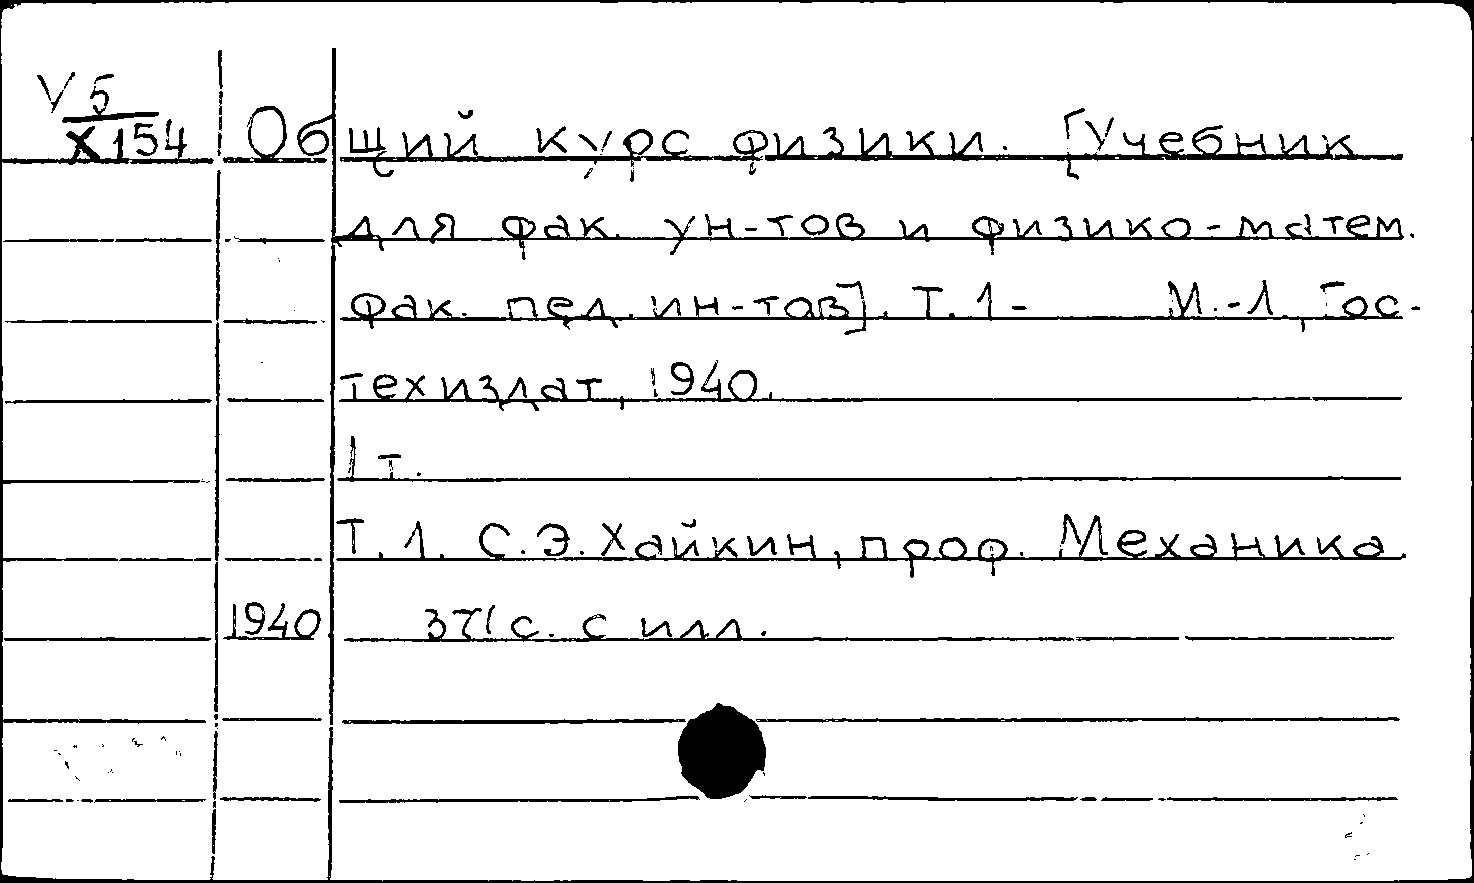 V 5
X154 Общий курс физики. [Учебник
для фак. ун-тов и физико-матем.
фак. пед. ин-тов]. Т. 1- М.-Л., Гос-
техиздат, 1940.
1 т.
Т. 1. С.Э. Хайкин, проф. Механика.
1940 371 с. с илл.